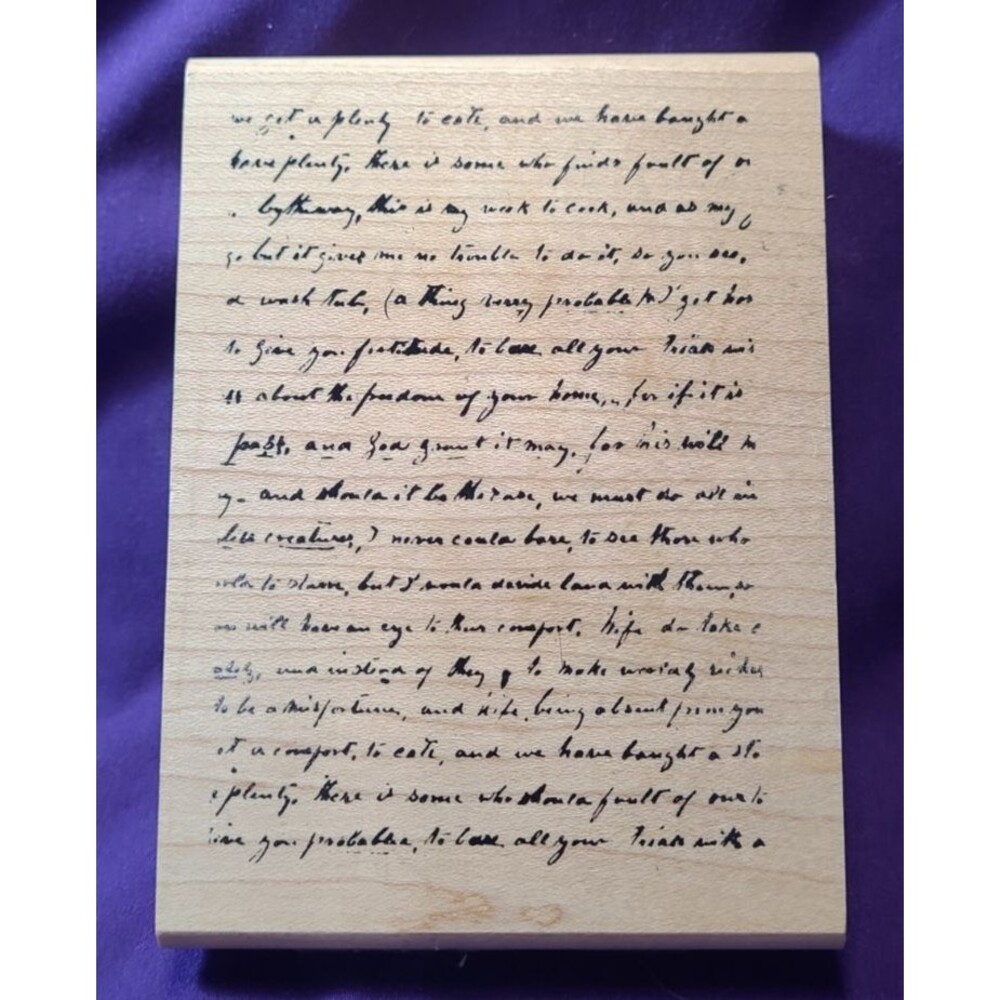 we get a plenty to eate, and we have baught a
have plenty, there is some who finds fault of
by the way, this is my week to cook, and as my
go but it gives me no trouble to do it, so you see,
a wash tub, (a thing verry probable) get
to give you fortitude, to bare all your trials
about the freedom of your home, for if it is
past, and God grant it may, for his will
and should it be the case, we must do all in
less creatures, I never could bare, to see those who
to starve, but I would devide land with them, so
will have an eye to their comfort. Wife do take
and instead of they to make
to be a misfortune, and wife, being absent from you
a comfort, to eate, and we have baught a sto
plenty, there is some who should fault of our to
give you probable, to bare all your trials with a